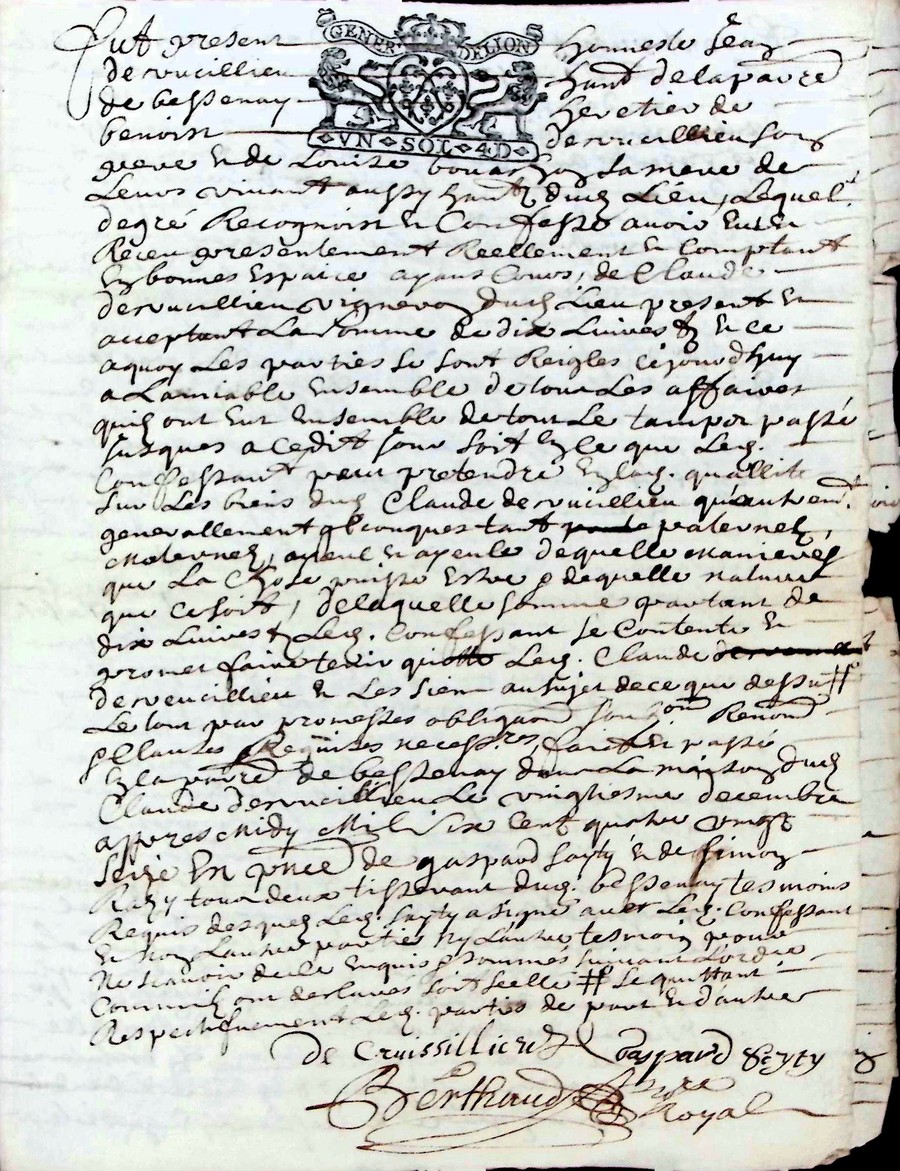 GENER DE LION
VN SOL 4D
Fut present honneste Jean
deruicillieu hant de la parre
de bessenay heretier de
benoist deruicillieu son
pere et de Louise sa mere de
Leurs vivant aussy hant dud Lieu, Lequel
de gré Recognoist et Confesse avoir eu et
Receu presentement Reellement et Comptant
En bonnes Espaice ayant Cours, de Claude
deruicillieu vigneron dud Lieu present et
acceptant La somme de dix Livres et ce
a quoy Les parties se sont Reigles ce jourdhuy
a Lamiable Ensemble de tous Les affaires
quils ont Eut Ensemble de tout Le tamps passé
Jusques a cedit Jour soit En ce que Led.
Confessant peut pretendre En lad. quallité
sur Les biens dud Claude deruicillieu qu autrem.t
generallement qlconques tant paternels,
Maternels, ayeul et ayeule de quelle Manieres
que La Chose puisse Estre et de quelle nature
que ce soit, de laquelle somme partant de
dix Livres Led. Confessant se Contente et
promet faire tenir quitte Led. Claude
deruicillieu et Les siens au sujet de ce que dessu #
Le tout par promesses obliguaon Renond
et Clauses Requises necess.res, fait et passé
En la parre de bessenay dans La maison dud
Claude deruicillieu Le vingtiesme decembre
appres Midy Mil Six Cent quatre vingt
seize En pnce de gaspard Seyty et de simon
tous deux tisserant dud. bessenay tesmoins
Requis desquels Led. Seyty a signé avec Led. Confessant
et non Lautre partie ny Lautre tesmoin pour
ne scavoir de ce Enquis et sommes suivant Lordre
Comme ils ont declarés soit seelle # se quittant
Respectivement Led. parties de part et d'autre
De Cruissillieu Gaspard Seyty
Berthaud nre
Royal